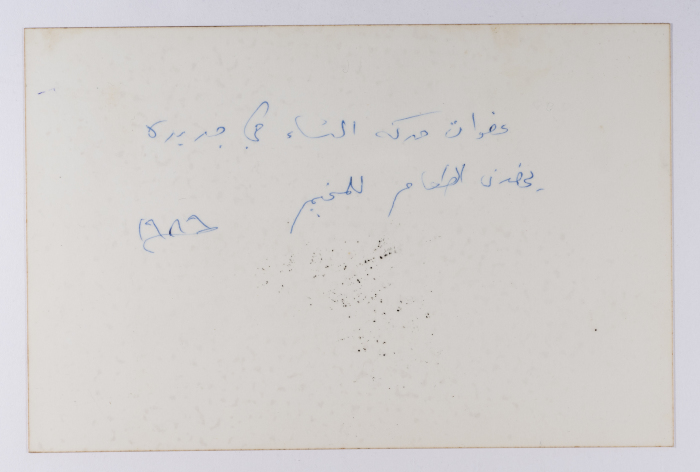 عضوات حركة النساء في جديدة
يحضرن الطعام للمخيم
١٩٨٩